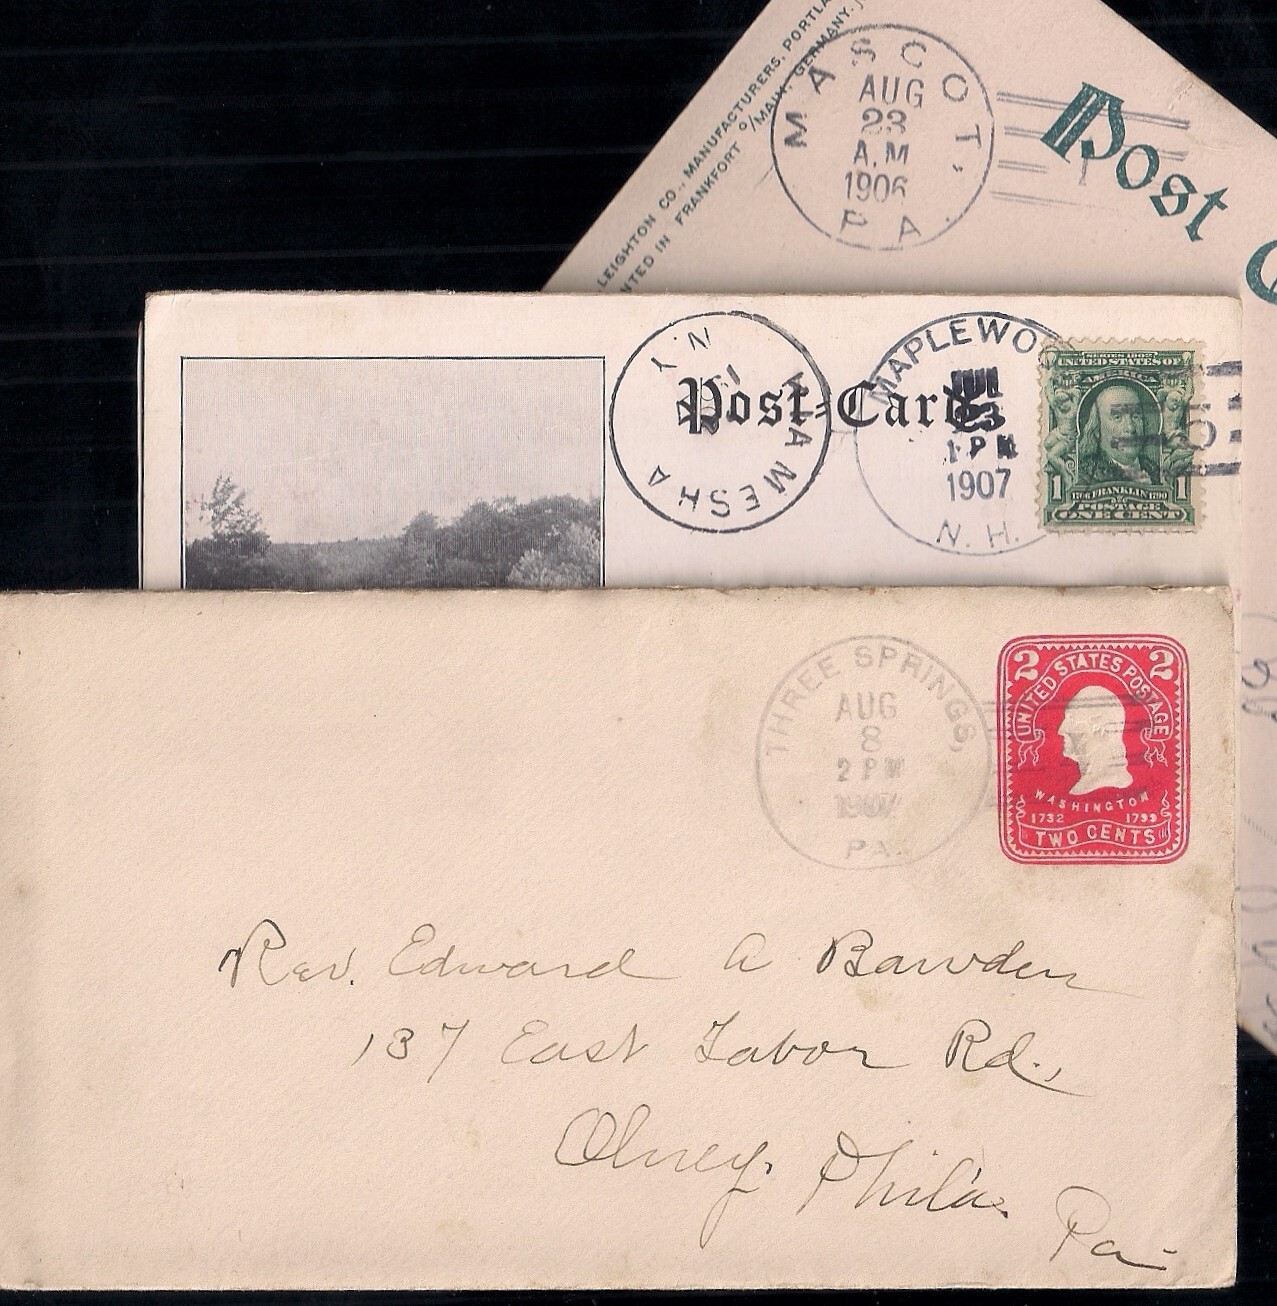 LEIGHTON CO., MANUFACTURERS, PORTLA
NTED IN FRANKFORT O/MAIN, GERMANY.
MASCOT,
AUG
23
A.M
1906
PA.
Post C
Post Card
KIAMESHA
N.Y
MAPLEWOO
23
1 PM
1907
N. H.
SERIES 1902
UNITED STATES OF
AMERICA
1 1706 FRANKLIN 1790 1
POSTAGE
ONE CENT
THREE SPRINGS,
AUG
8
2 PM
1907
PA.
2 2
UNITED STATES POSTAGE
WASHINGTON
1732 1799
TWO CENTS
Rev. Edward A Bawden
137 East Tabor Rd.,
Olney. Phila.
Pa